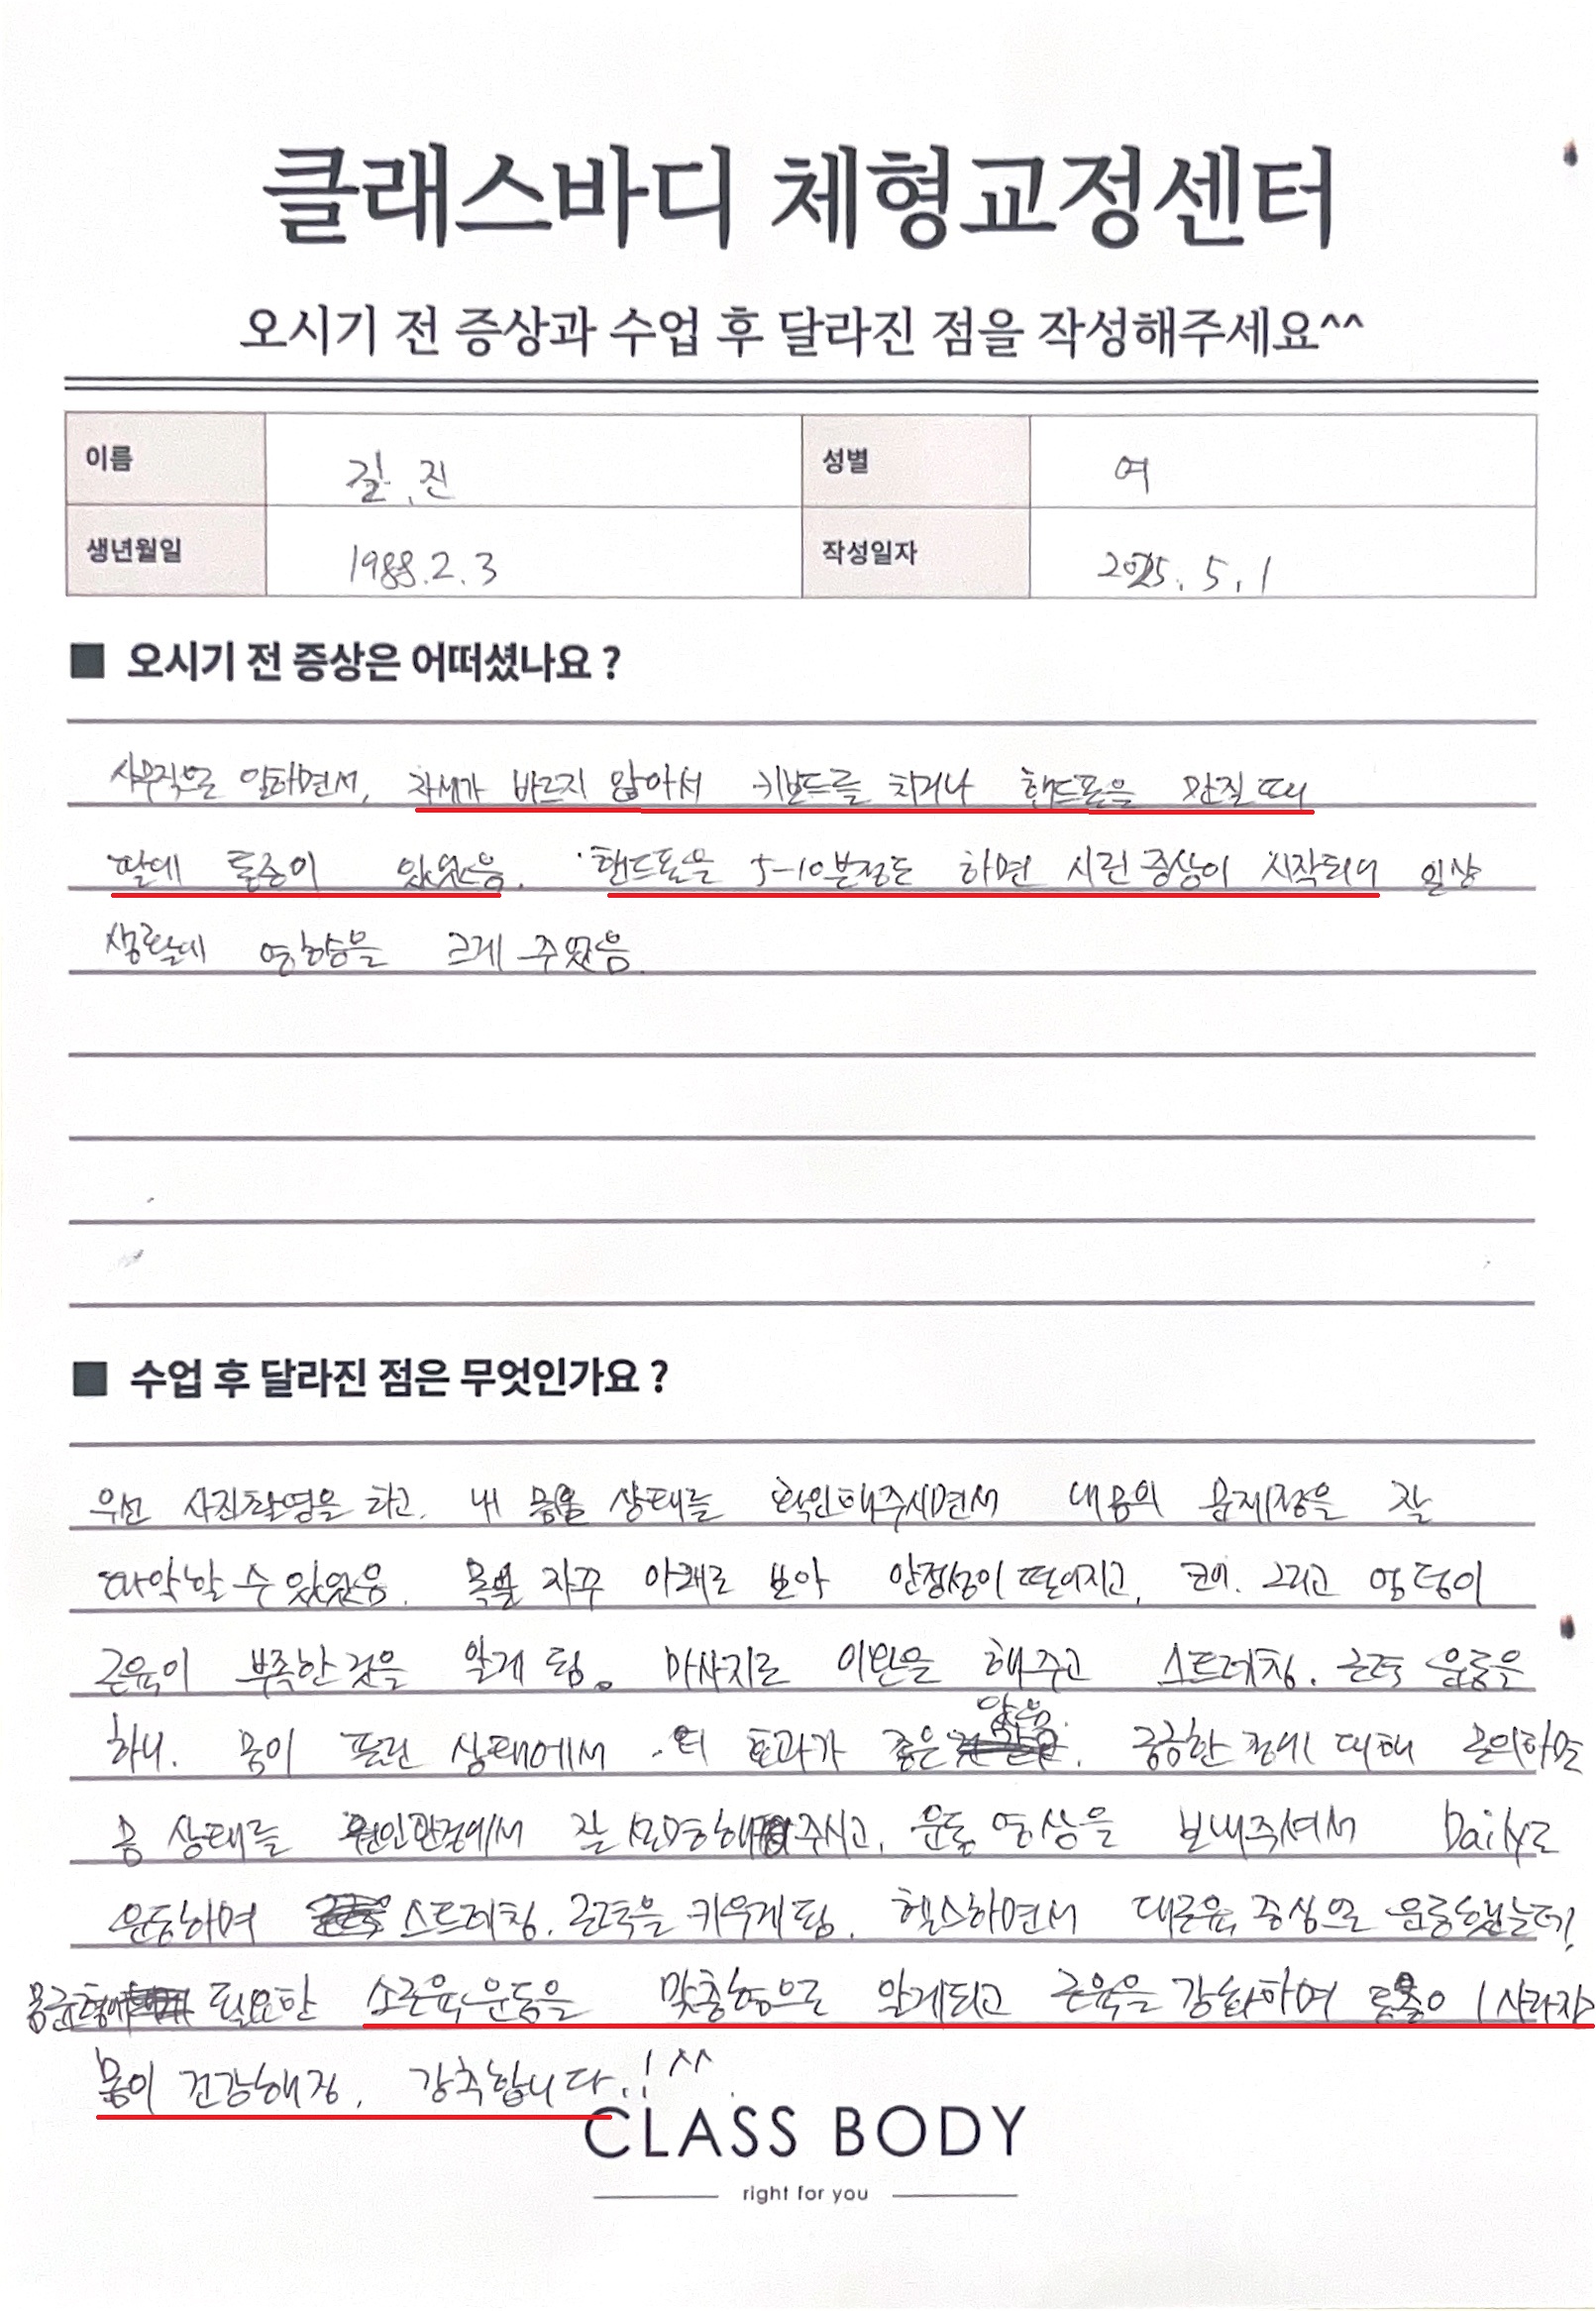 클래스바디 체형교정센터
오시기 전 증상과 수업 후 달라진 점을 작성해주세요^^
이름 길.진 성별 여
생년월일 1988.2.3 작성일자 2025.5.1
■ 오시기 전 증상은 어떠셨나요 ?
사무직으로 일하면서, 자세가 바르지 않아서 키보드를 치거나 핸드폰을 만질 때
팔에 통증이 있었음. 핸드폰을 5-10분정도 하면 시린 증상이 시작되어 일상
생활에 영향을 크게 주었음.
■ 수업 후 달라진 점은 무엇인가요 ?
우선 사진촬영을 하고, 내 몸의 상태를 확인해주시면서 내몸의 문제점을 잘
파악할 수 있었음. 목을 자꾸 아래로 보아 안정성이 떨어지고, 코어. 그리고 엉덩이
근육이 부족한 것을 알게 됨. 마사지로 이완을 해주고 스트레칭. 근력 운동을
하니. 몸이 풀린 상태에서 더 효과가 좋은 . 궁금한 점에 대해 문의하면
몸 상태를 원인관점에서 잘 설명해주시고, 운동 영상을 보내주셔서 Daily로
운동하며 스트레칭. 근력을 키우게 됨. 헬스하면서 대근육 중심으로 운동했는데,
몸균형에 필요한 소근육 운동을 맞춤형으로 알게되고 근육을 강화하며 통증이 사라지고
몸이 건강해짐. 강추합니다.!^^
CLASS BODY
right for you